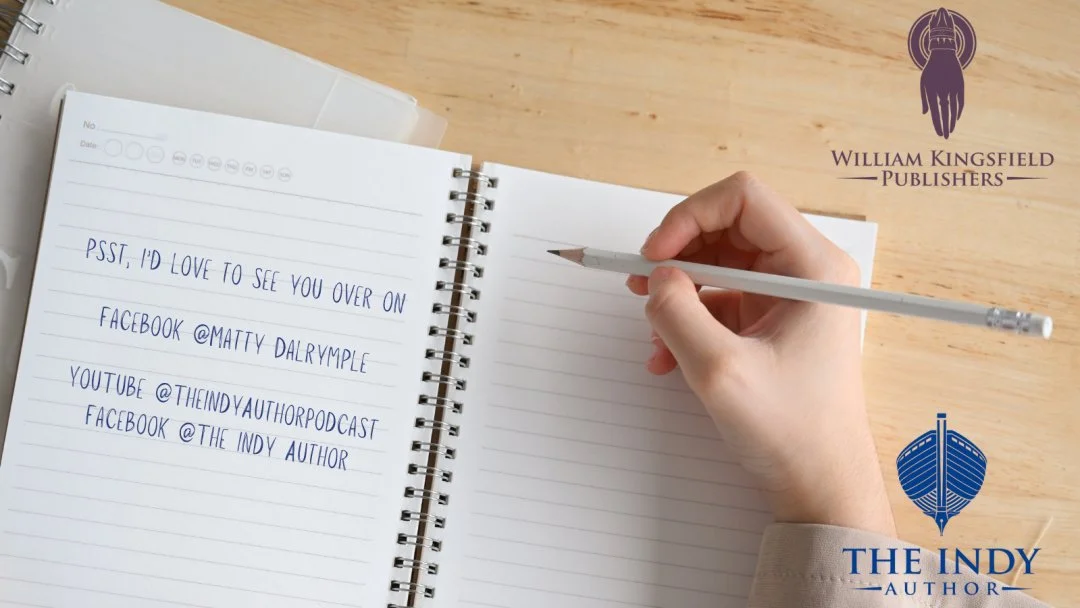 No.
Date:
MON TUE WED THU FRI SAT SUN
PSST, I'D LOVE TO SEE YOU OVER ON
FACEBOOK @MATTY DALRYMPLE
YOUTUBE @THEINDYAUTHORPODCAST
FACEBOOK @THE INDY AUTHOR
WILLIAM KINGSFIELD
PUBLISHERS
THE INDY
AUTHOR